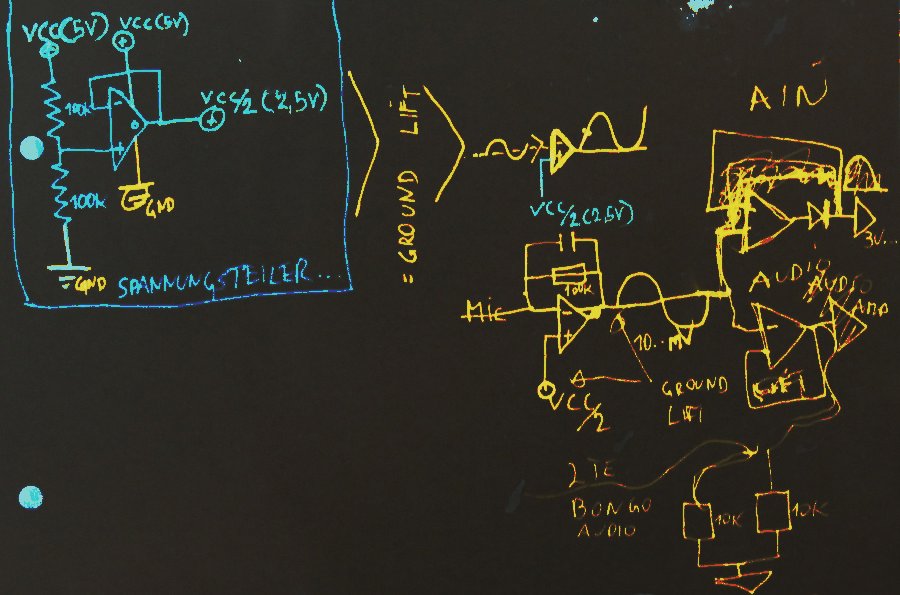 VCC(5V)
VCC(5V)
100k
-
+
VCC/2 (2,5V)
GND
100k
GND
SPANNUNGSTEILER...
= GROUND LIFT
VCC/2(2,5V)
AIN
3V...
100k
MIC
-
+
VCC/2
10...mV
GROUND
LIFT
AUDIO
AUDIO
AMP
-
2TE
BONGO
AUDIO
10K
10K